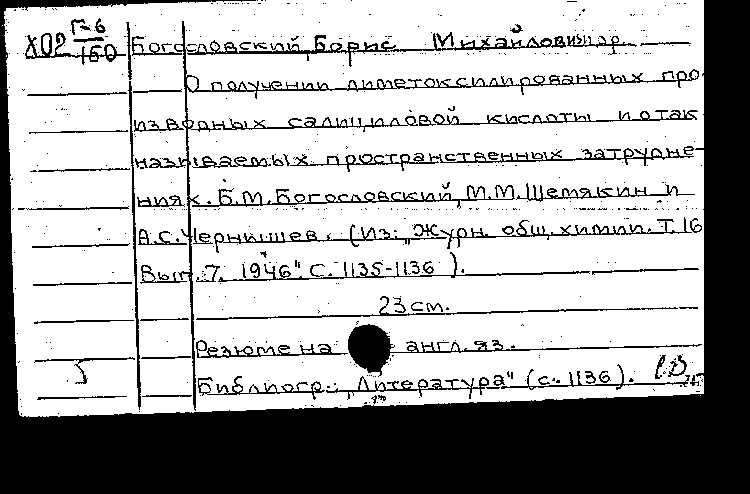 Х02 Г-6/160
Богословский, Борис Михайлович и др.
О получении диметоксилированных про-
изводных салициловой кислоты и о так
называемых пространственных затрудне-
ниях. Б.М. Богословский, М.М. Шемякин и
А.С. Чернышев. (Из: „Журн. общ. химии. Т. 16
Вып. 7. 1946". С. 1135-1136).
23 см.
Резюме на англ. яз.
Библиогр.: „Литература" (с. 1136).